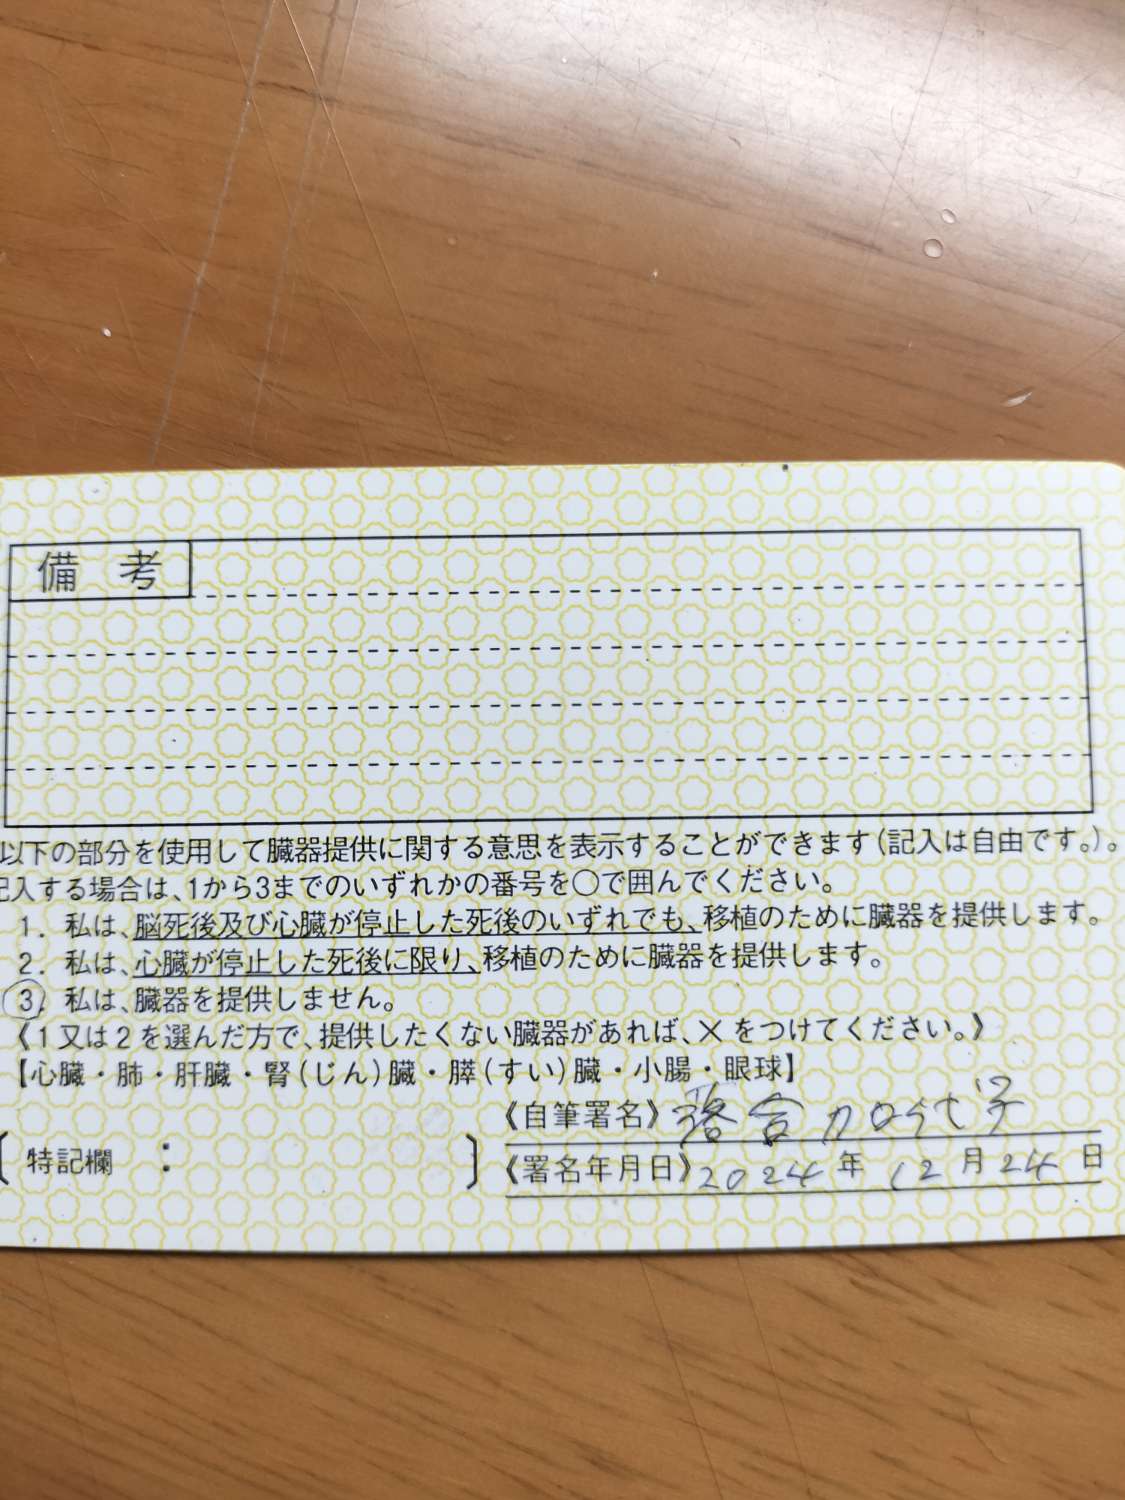 備考
以下の部分を使用して臓器提供に関する意思を表示することができます(記入は自由です。)。
記入する場合は、1から3までのいずれかの番号を○で囲んでください。
1. 私は、脳死後及び心臓が停止した死後のいずれでも、移植のために臓器を提供します。
2. 私は、心臓が停止した死後に限り、移植のために臓器を提供します。
3. 私は、臓器を提供しません。
《1又は2を選んだ方で、提供したくない臓器があれば、×をつけてください。》
【心臓・肺・肝臓・腎(じん)臓・膵(すい)臓・小腸・眼球】
《自筆署名》落合加代子
〔特記欄：〕
《署名年月日》2024年12月24日